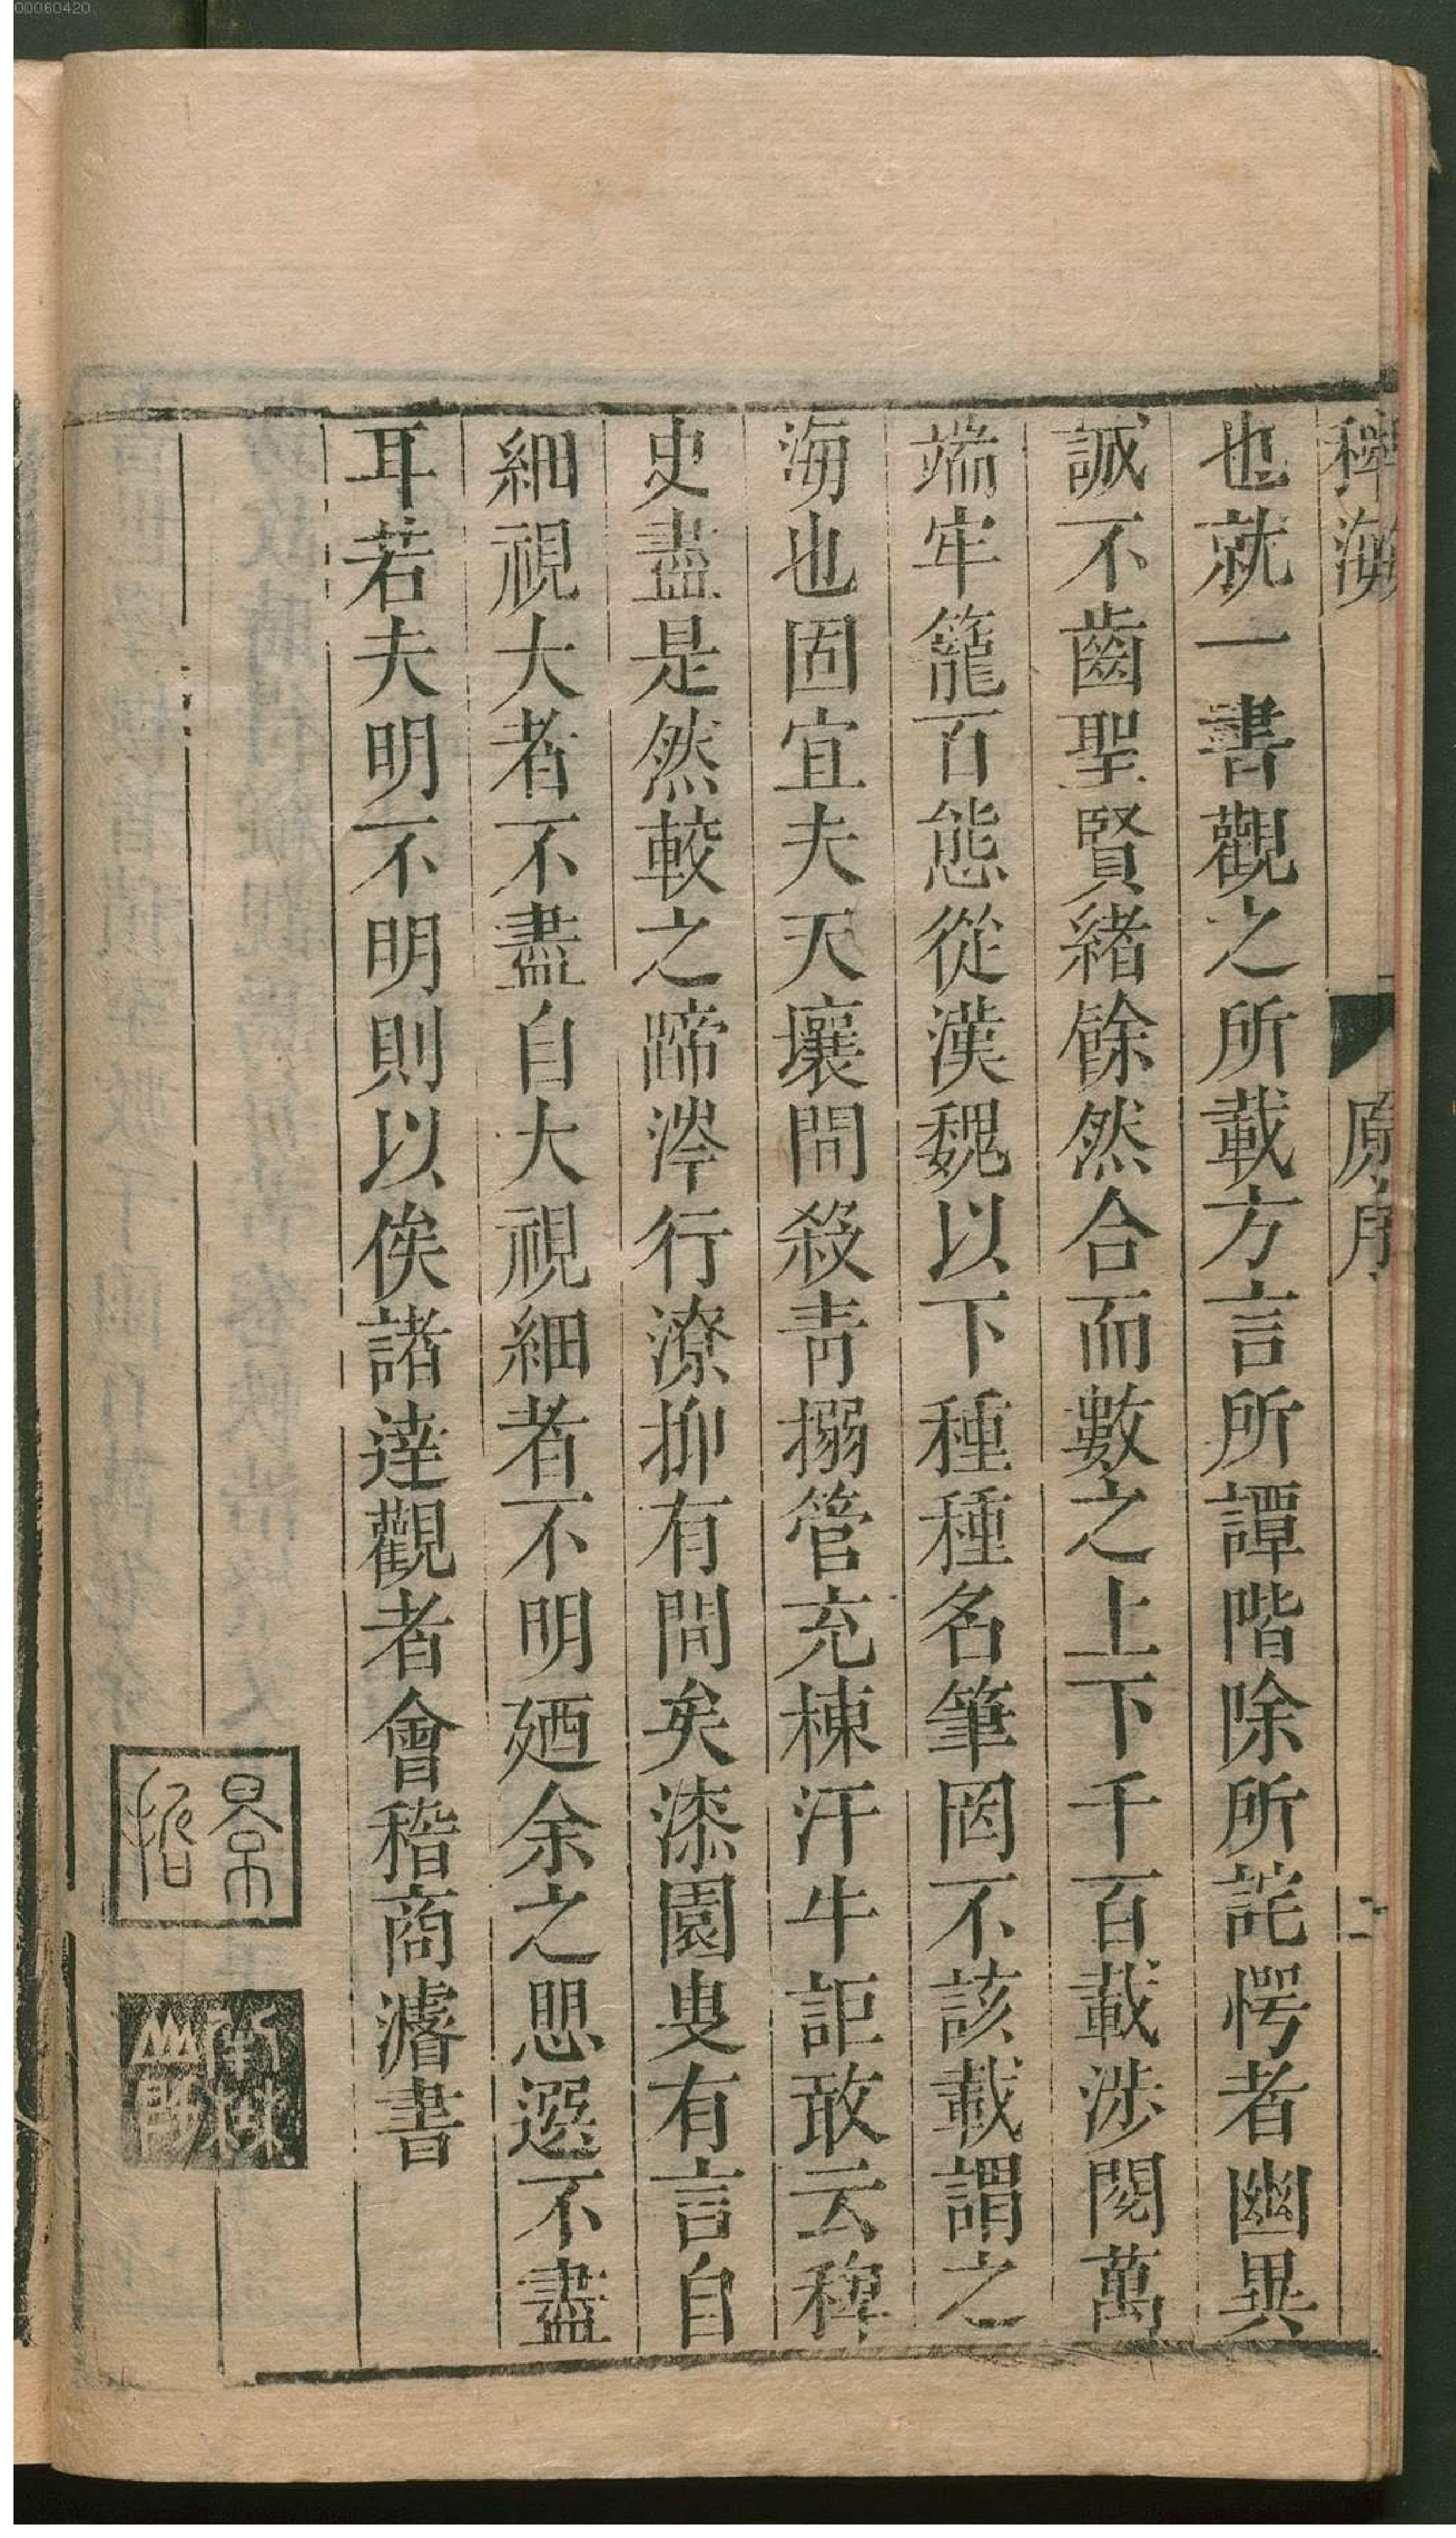 00060420
稗海
原序
二
也就一書觀之所載方言所譚階除所詫愕者幽異
誠不齒聖賢緒餘然合而數之上下千百載涉閱萬
端牢籠百態從漢魏以下種種名筆罔不該載謂之
海也固宜夫天壤間殺青搦管充棟汗牛詎敢云稗
史盡是然較之蹄涔行潦抑有間矣漆園叟有言自
細視大者不盡自大視細者不明廼余之思選不盡
耳若夫明不明則以俟諸達觀者會稽商濬書